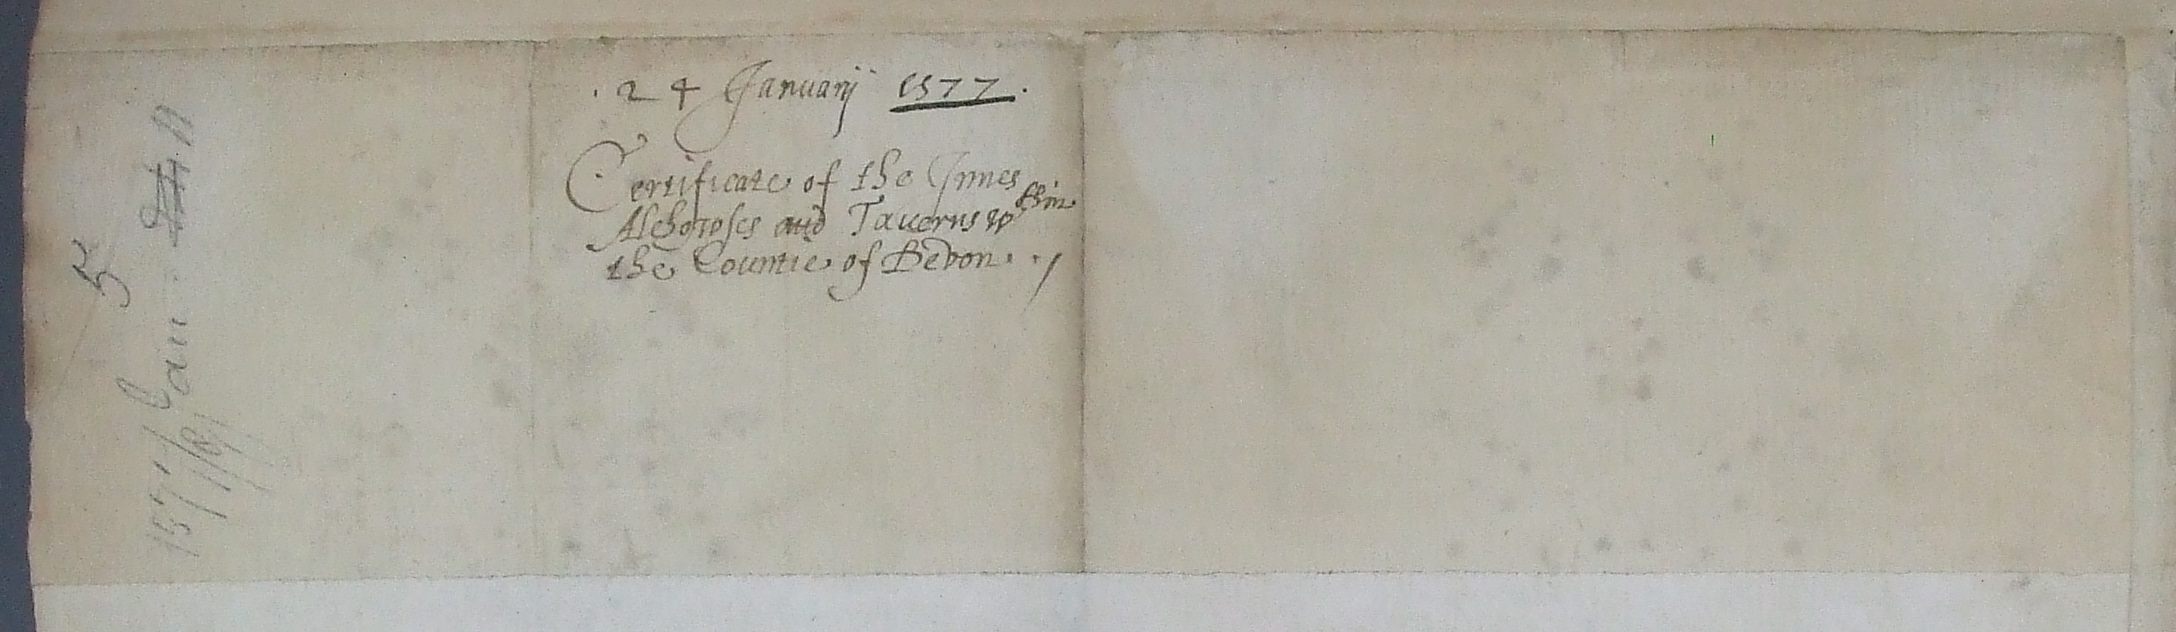 . 24 Januarij 1577 .
Certificate of the Innes
Alehowses and Taverns wthin
the Countie of Devon . /
5
1577/8 Jan.